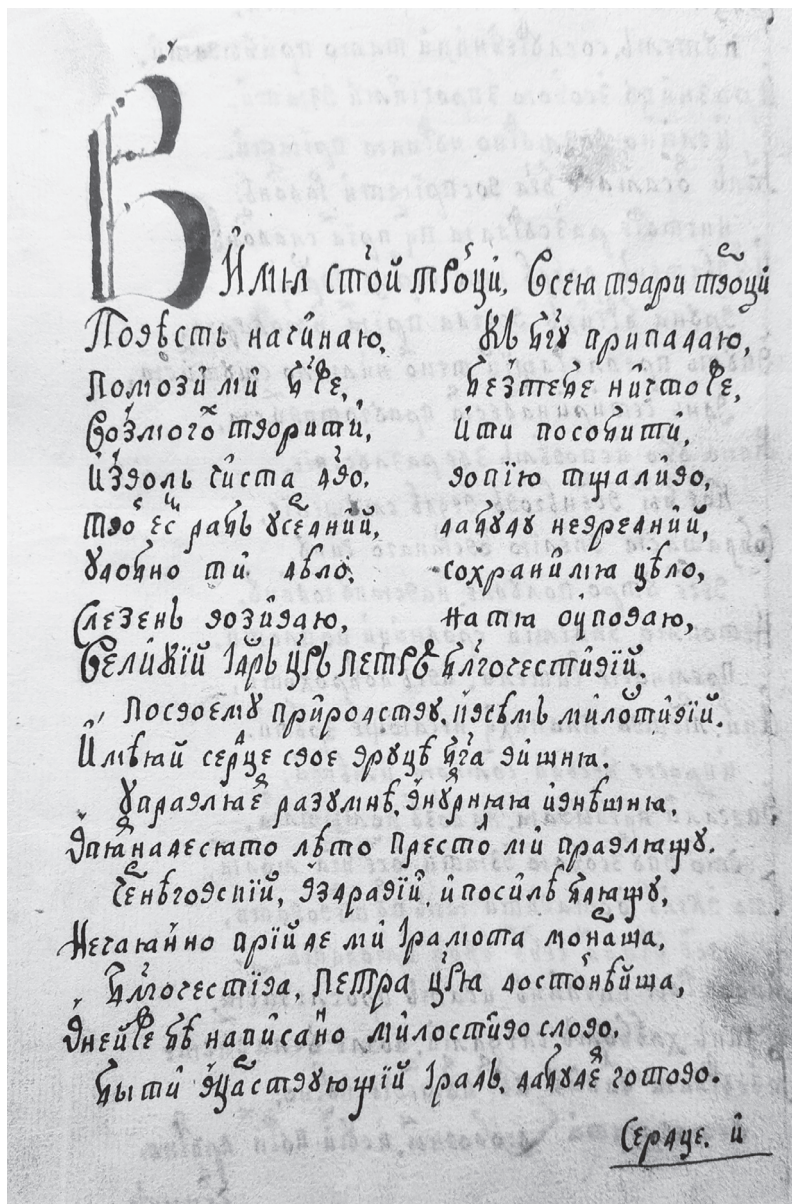 В
И́мѧ ст҃ой трⷪ҇ци, Всею твари твоⷬ҇ци
Повѣсть начинаю, Къ бг҃у припадаю,
Помози ми бж҃е, безтебе ничтоже,
Возмогꙋ творити, ити посопити,
Издоль чиста дѣво, вопїю тщаливо,
Твоⷨ҇ есⷨ҇ рабъ усеⷬ҇дний, дабуду невредний,
Удобно ти дѣло, сохранимѧ цѣло,
Слезенъ возиваю, натѧ оуповаю,
Великїй Гдⷭ҇рь Цр҃ь Петръ бл҃гочестивїй,
Посвоему природству, ивсѣмъ милоⷭ҇тивїй.
Имѣѧй серⷣце свое вруцѣ бг҃а вишнѧ.
Управлѧеⷮ разумнѣ, внуⷮрнюю ивнѣшню,
Впѧⷮнадесѧто лѣто престоⷧ мй правлющу.
Чеⷬнѣговский, вздравїй, ипосилѣ бдѧщу,
Нечаѧнно прїйде ми грамота монаⷬша,
Бл҃гочестїва, Петра Цр҃ѧ достоⷩнѣйша,
Внейже бѣ написанно милостиво слово,
Быти вцаⷬствующїй градъ, дабудеⷮ готово.
Сердце. и